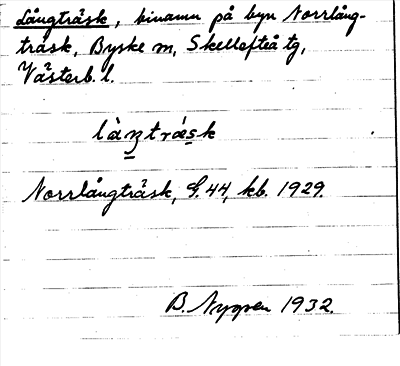 Långträsk, binamn på byn Norrlång-
träsk, Byske sn, Skellefteå tg,
Västerb. l.
làŋtræ̀sk
Norrlångträsk, G. 44, kb. 1929.
B. Nygren 1932.